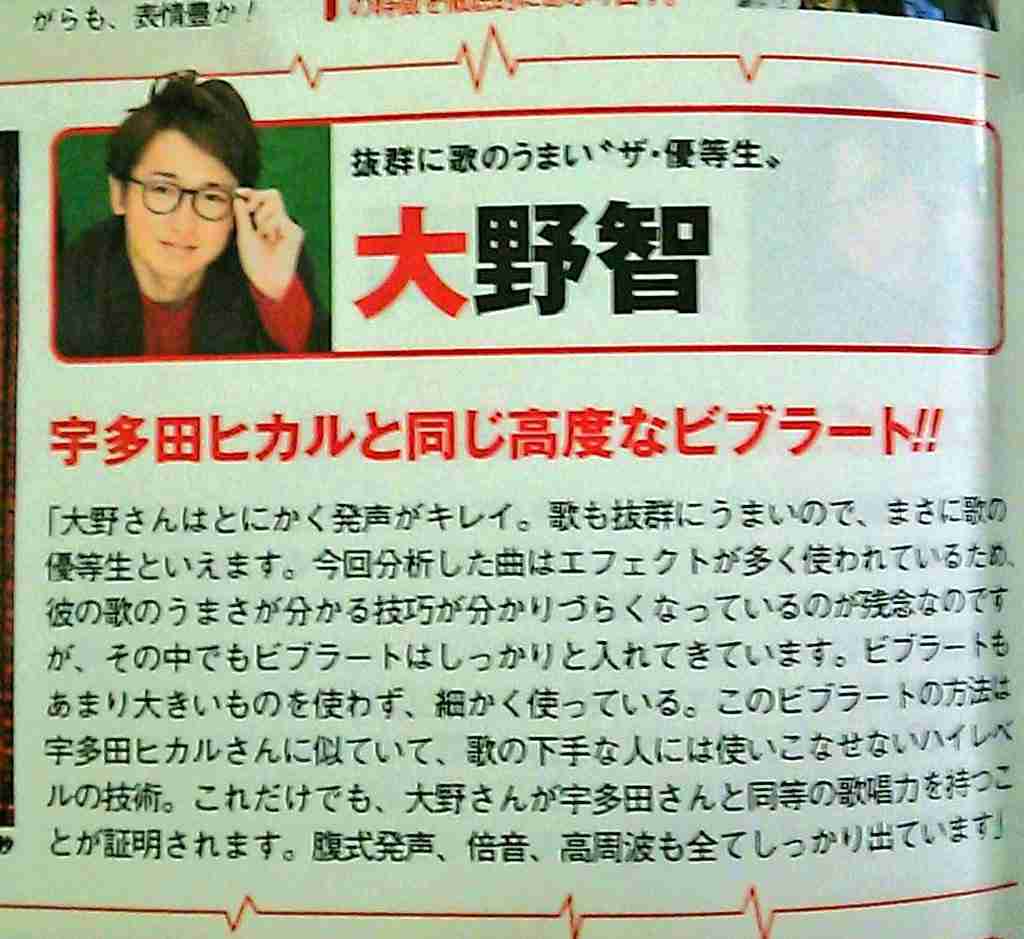 がらも、表情豊か!
抜群に歌のうまい〝ザ・優等生〟
大野智
宇多田ヒカルと同じ高度なビブラート!!
「大野さんはとにかく発声がキレイ。歌も抜群にうまいので、まさに歌の
優等生といえます。今回分析した曲はエフェクトが多く使われているため、
彼の歌のうまさが分かる技巧が分かりづらくなっているのが残念なのです
が、その中でもビブラートはしっかりと入れてきています。ビブラートも
あまり大きいものを使わず、細かく使っている。このビブラートの方法は
宇多田ヒカルさんに似ていて、歌の下手な人には使いこなせないハイレベ
ルの技術。これだけでも、大野さんが宇多田さんと同等の歌唱力を持つこ
とが証明されます。腹式発声、倍音、高周波も全てしっかり出ています」